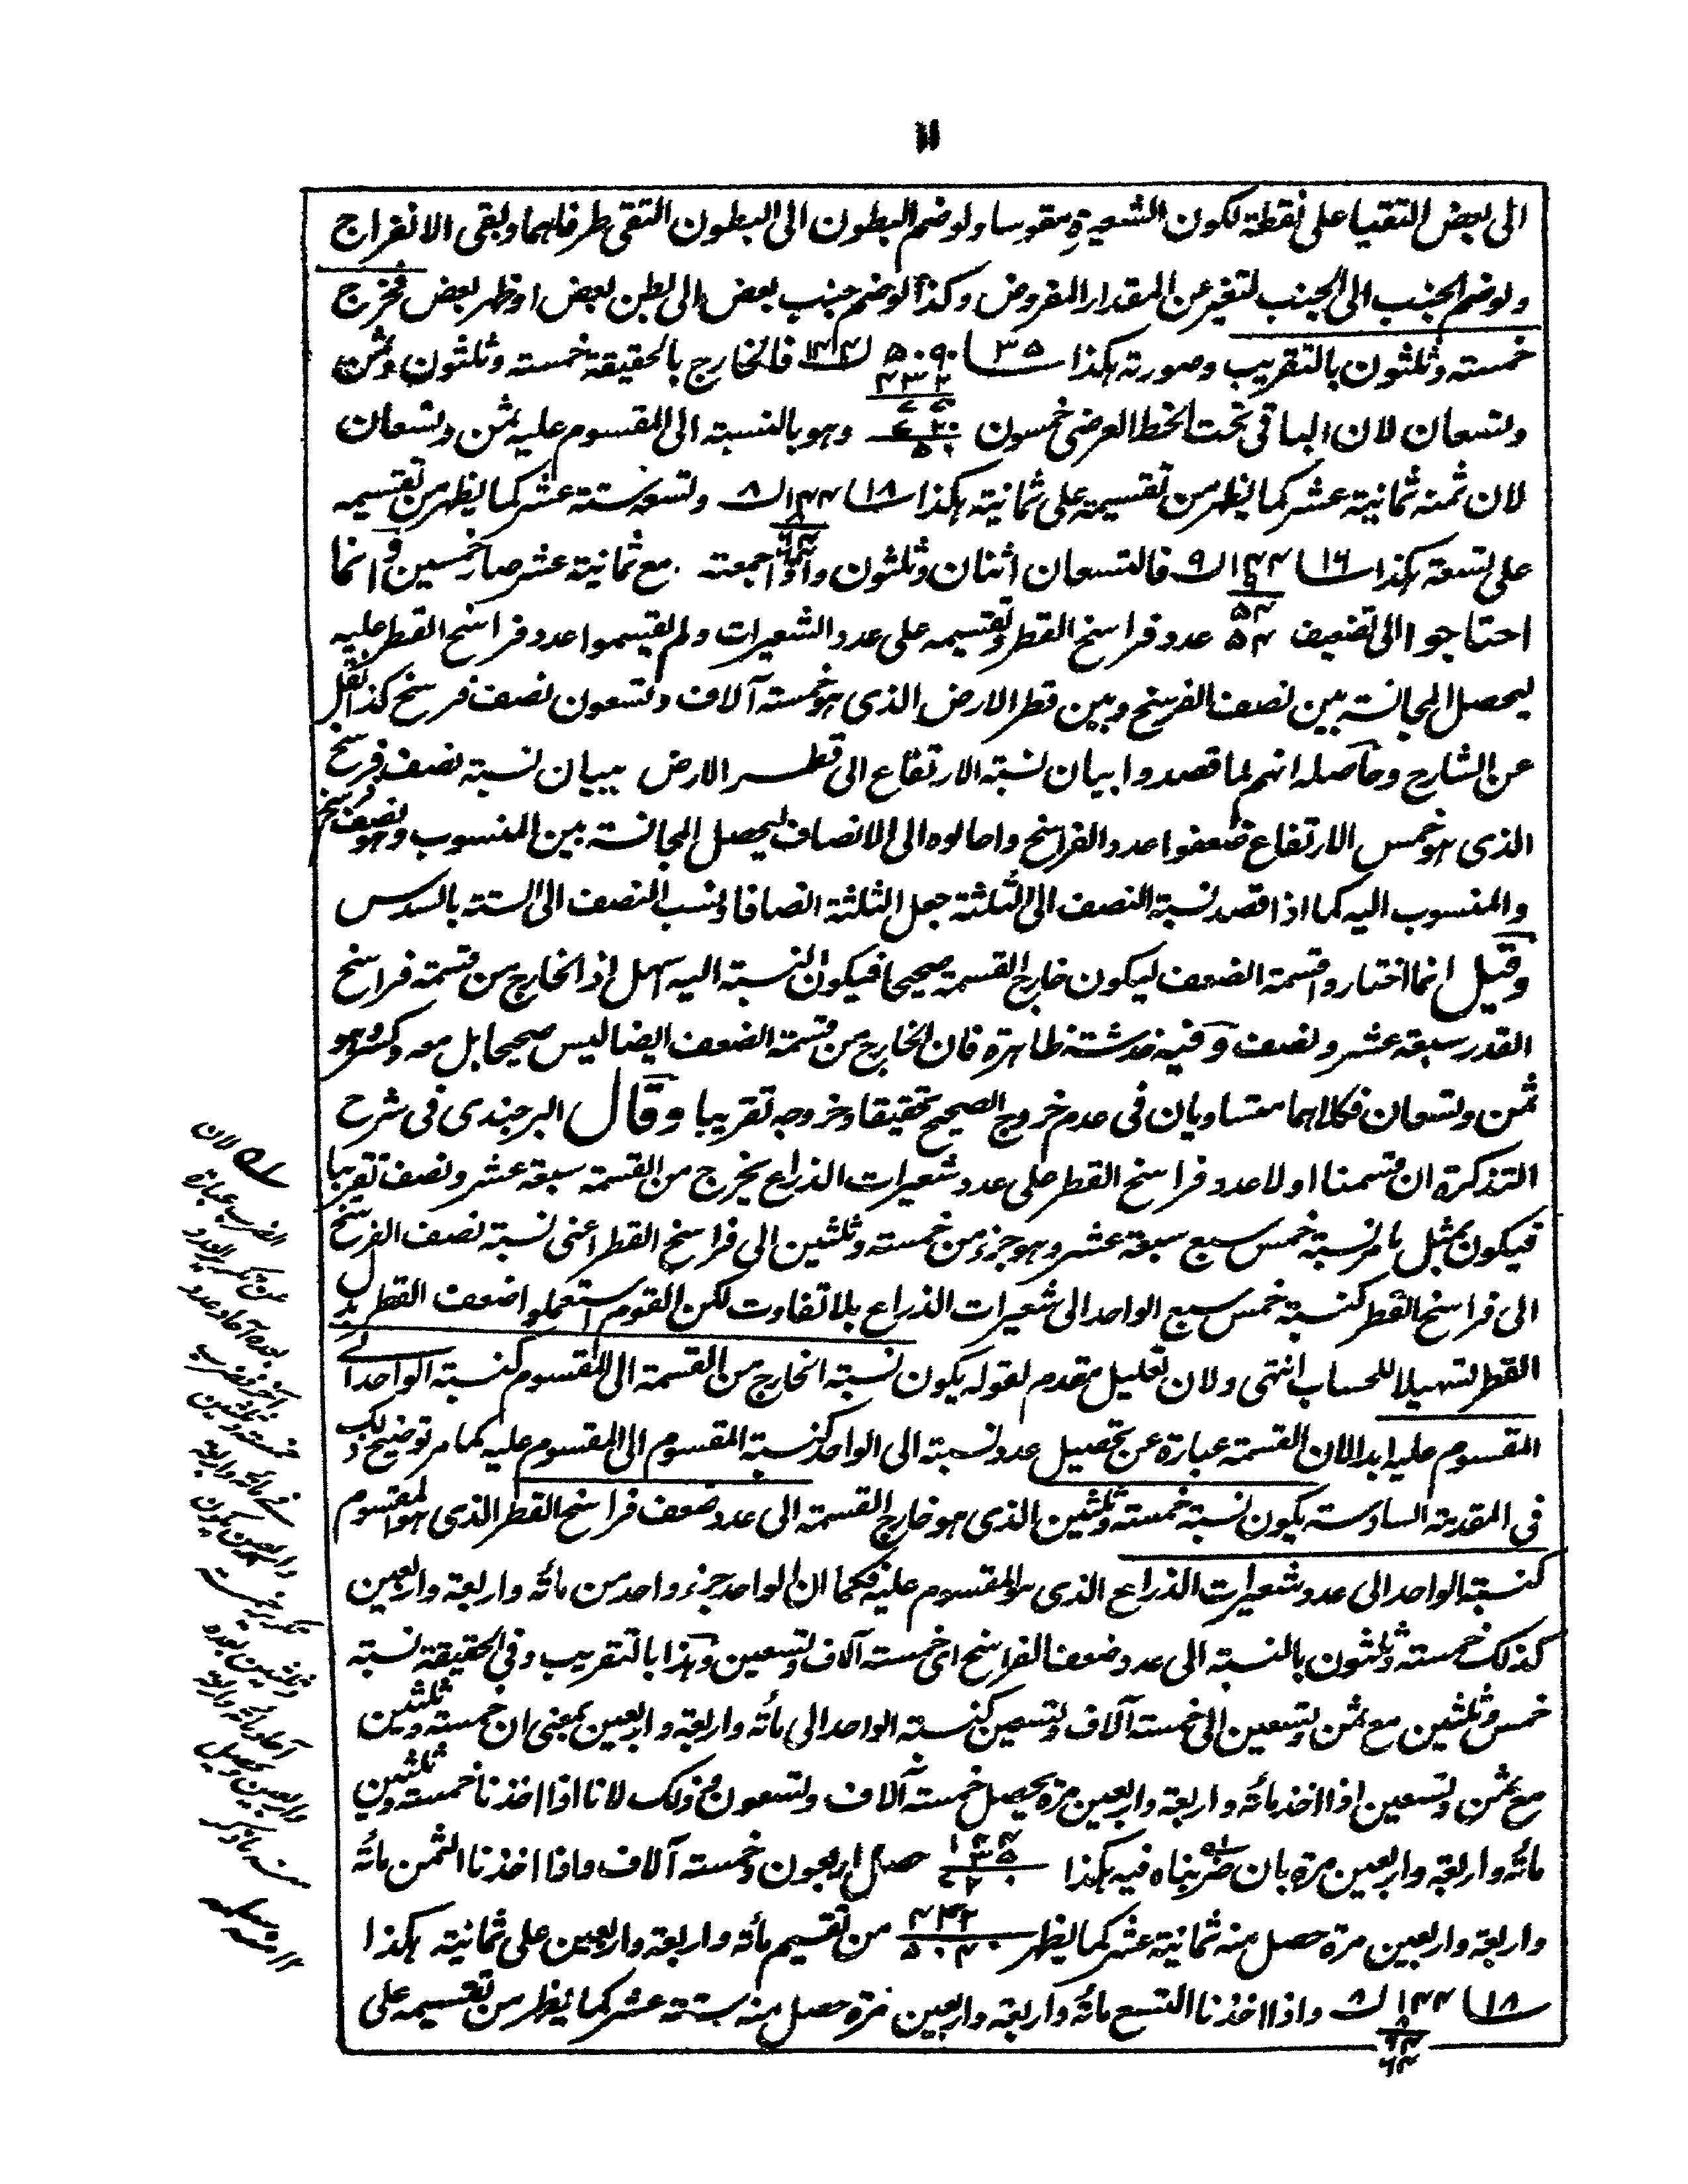 ١١
الى بعض التقيا على نقطة لكون الشعيرة مقوسا ولو ضم البطون الى البطون التقى طرفاهما وبقى الانفراج
ولو ضم الجنب الى الجنب لتغير عن المقدار المفروض وكذا لو ضم جنب بعض الى بطن بعض او ظهر بعض فخرج
خمسته وثلثون بالتقريب وصورته هكذا ٣٥ ٥٠٩٠ ١٤٤ فالخارج بالحقيقة خمسته وثلثون وثمن
٤٣٢
٧٧٠
٧٢٠
٥٠
وتسعان لان الباقى تحت الخط العرضى خمسون وهو بالنسبته الى المقسوم عليه ثمن وتسعان
لان ثمنه ثمانية عشر كما يظهر من تقسيمه على ثمانيته هكذا ١٨ ١٤٤ ٨ وتسعه ستته عشر كما يظهر من تقسيمه
٨
٦٤
على تسعته هكذا ١٦ ١٤٤ ٩ فالتسعان اثنان وثلثون واذا جمعته مع ثمانيته عشر صار خمسين وانما
٩
٥٤
احتاجوا الى تضعيف ٥٤ عدد فراسخ القطر وتقسيمه على عدد الشعيرات ولم يقسموا عدد فراسخ القطر عليه
ليحصل المجانسته بين نصف الفرسخ وبين قطر الارض الذى هو خمسته آلاف وتسعون نصف فرسخ كذا نقل
عن الشارح وحاصله انهم لما قصدوا بيان نسبته الارتفاع الى قطر الارض ببيان نسبته نصف فرسخ
الذى هو خمس الارتفاع ضعفوا عدد الفراسخ واحالوه الى الانصاف ليحصل المجانسته بين المنسوب وهو نصف فرسخ
والمنسوب اليه كما اذا قصد نسبته النصف الى الثلثة جعل الثلثة انصافا ونسب النصف الى الستته بالسدس
وقيل انما اختاروا قسمة الضعف ليكون خارج القسمة صحيحا فيكون النسبته اليه اسهل اذ الخارج من قسمته فراسخ
القدر سبعته عشر ونصف وفيه خدشته ظاهرة فان الخارج من قسمته الضعف ايضا ليس صحيحا بل معه كسر وهو
ثمن وتسعان فكلاهما متساويان فى عدم خروج الصحيح تحقيقا وخروجه تقريبا وقال البرجندى فى شرح
التذكرة ان قسمنا اولا عدد فراسخ القطر على عدد شعيرات الذراع يخرج من القسمته سبعته عشر ونصف تقريبا
فيكون بمثل ما مر نسبته خمس سبع سبعته عشر وهو جزء من خمسته وثلثين الى فراسخ القطر اعنى نسبته نصف الفرسخ
الى فراسخ القطر كنسبته خمس سبع الواحد الى شعيرات الذراع بلا تفاوت لكن القوم استعملوا ضعف القطر بدل
القطر تسهيلا للحساب انتهى ولان تعليل متقدم لقوله يكون نسبته الخارج من القسمته الى المقسوم كنسبته الواحد الى
المقسوم عليه ابدا لان القسمته عبارة عن تحصيل عدد نسبته الى الواحد كنسبته المقسوم الى المقسوم عليه كما مر توضيح ذلك
فى المقدمته السادسته يكون نسبته خمسته وثلثين الذى هو خارج القسمته الى عدد ضعف فراسخ القطر الذى هو المقسوم
كنسبته الواحد الى عدد شعيرات الذراع الذى هو المقسوم عليه فكما ان الواحد جزء واحد من مائه واربعة واربعين
كذلك خمسته وثلثون بالنسبته الى عدد ضعف الفراسخ اى خمسته آلاف وتسعين وهذا بالتقريب وفى الحقيقة نسبته
خمس وثلثين مع ثمن وتسعين الى خمسته آلاف وتسعين كنسبته الواحد الى مائه واربعة واربعين بمعنى ان خمسته وثلثين
مع ثمن وتسعين اذا اخذ مائه واربعة واربعين مرة يحصل خمسته آلاف وتسعون وذلك لانا اذا اخذنا خمسته وثلثين
مائه واربعة واربعين مرة بان ضربناه فيه هكذا ١٤٤ حصل اربعون وخمسته آلاف واذا اخذنا الثمن مائه
٣٥
٧٢٠
واربعة واربعين مرة حصل منه ثمانيته عشر كما يظهر ٤٣٢ من تقسيم مائه واربعة واربعين على ثمانيته هكذا
٥٠٤٠
١٨ ١٤٤ ٨ واذا اخذنا التسع مائه واربعة واربعين مرة حصل منه ستته عشر كما يظهر من تقسيمه على
٨
٦٤
٦٤
لان
الضرب عبارة
عن تكرير العدد
بعدة آحاد عدد
آخر فضرب
خمسته وثلثين
فى مائه واربعة
واربعين يكون
تكرير خمسته
وثلثين بعدة
آحاد مائه واربعة
واربعين